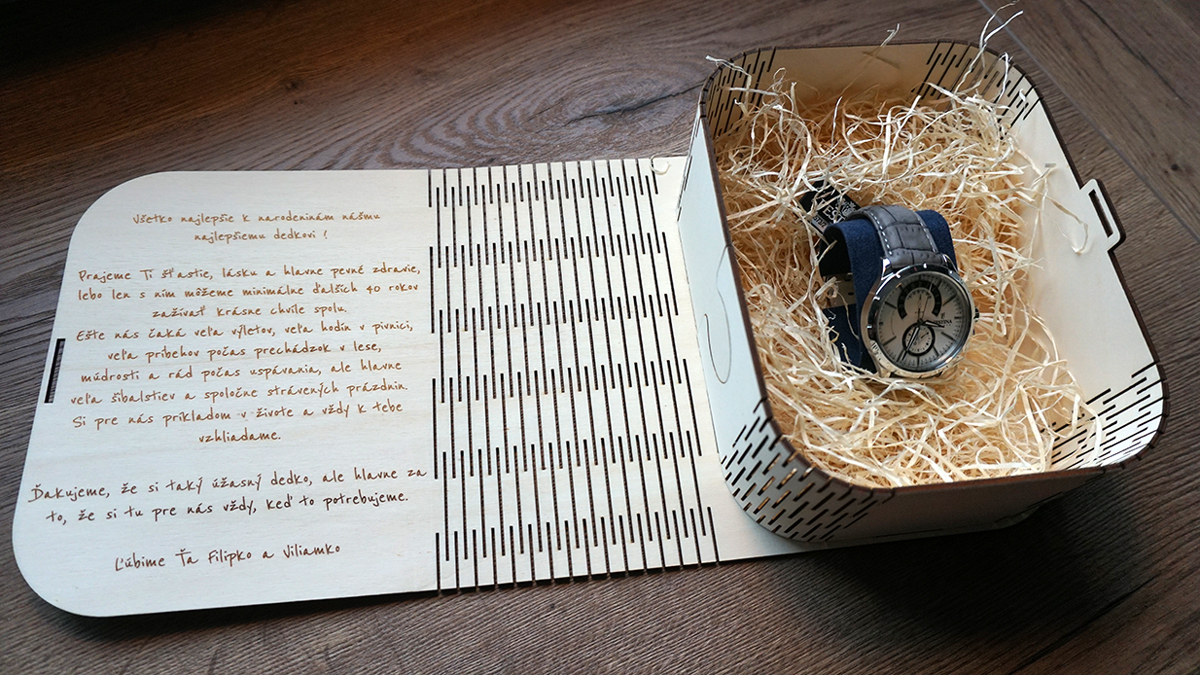 Všetko najlepšie k narodeninám nášmu
najlepšiemu dedkovi !
Prajeme Ti šťastie, lásku a hlavne pevné zdravie,
lebo len s ním môžeme minimálne ďalších 40 rokov
zažívať krásne chvíle spolu.
Ešte nás čaká veľa výletov, veľa hodín v pivnici,
veľa príbehov počas prechádzok v lese,
múdrosti a rád počas uspávania, ale hlavne
veľa šibalstiev a spoločne strávených prázdnin.
Si pre nás príkladom v živote a vždy k tebe
vzhliadame.
Ďakujeme, že si taký úžasný dedko, ale hlavne za
to, že si tu pre nás vždy, keď to potrebujeme.
Ľúbime Ťa Filipko a Viliamko